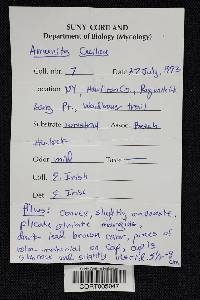 SUNY CORTLAND
Department of Biology (Mycology)
Amanita Ceciliae
Coll. nbr. 7 Date 27 July, 1992
Location NY, Hamilton Co., Raquette Lk
Long Pt., Woodhouse trail
Substrate terrestrial Assoc. Beech
Hemlock
Odor mild Taste
Coll. E. Irish
Det. E. Irish
Pileus: Convex, slightly
plicate striate margin,
dark brown color, pieces of
volva material on cap,
and slightly
cm
CORT005047